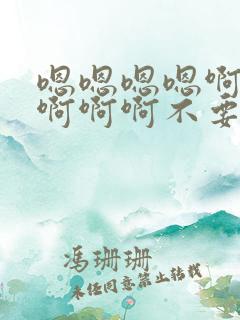 嗯嗯嗯嗯啊
啊啊啊不要
冯珊珊
未经同意禁止转载